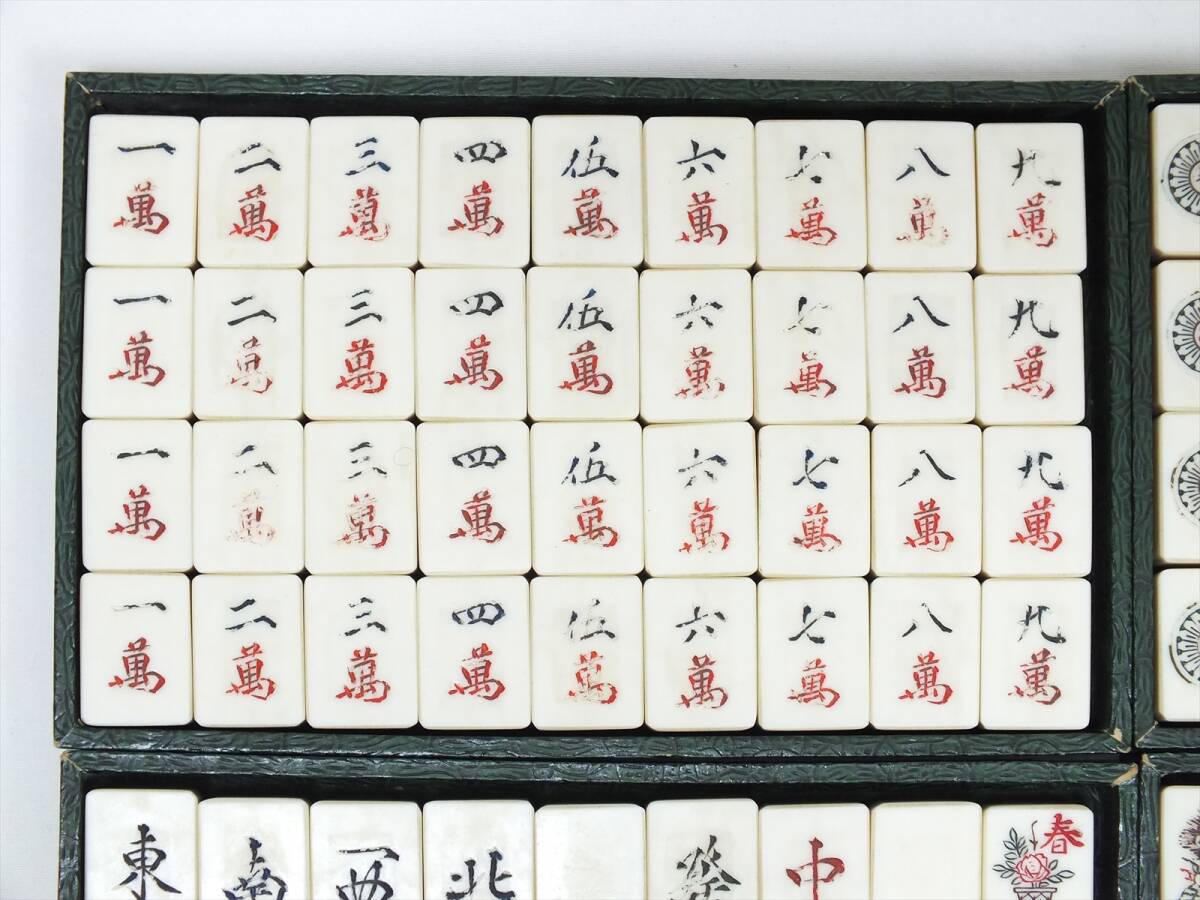 一萬 二萬 三萬 四萬 伍萬 六萬 七萬 八萬 九萬
一萬 二萬 三萬 四萬 伍萬 六萬 七萬 八萬 九萬
一萬 二萬 三萬 四萬 伍萬 六萬 七萬 八萬 九萬
一萬 二萬 三萬 四萬 伍萬 六萬 七萬 八萬 九萬
東 南 西 北 發 中 春